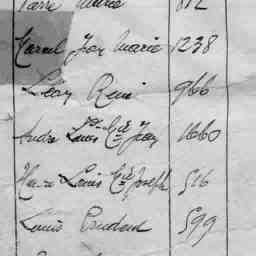 Pierre Marie 812
Marcel Jean Marie 1238
Léon René 966
André Louis Jean 1660
Henri Louis Joseph 516
Louis Prudent 599